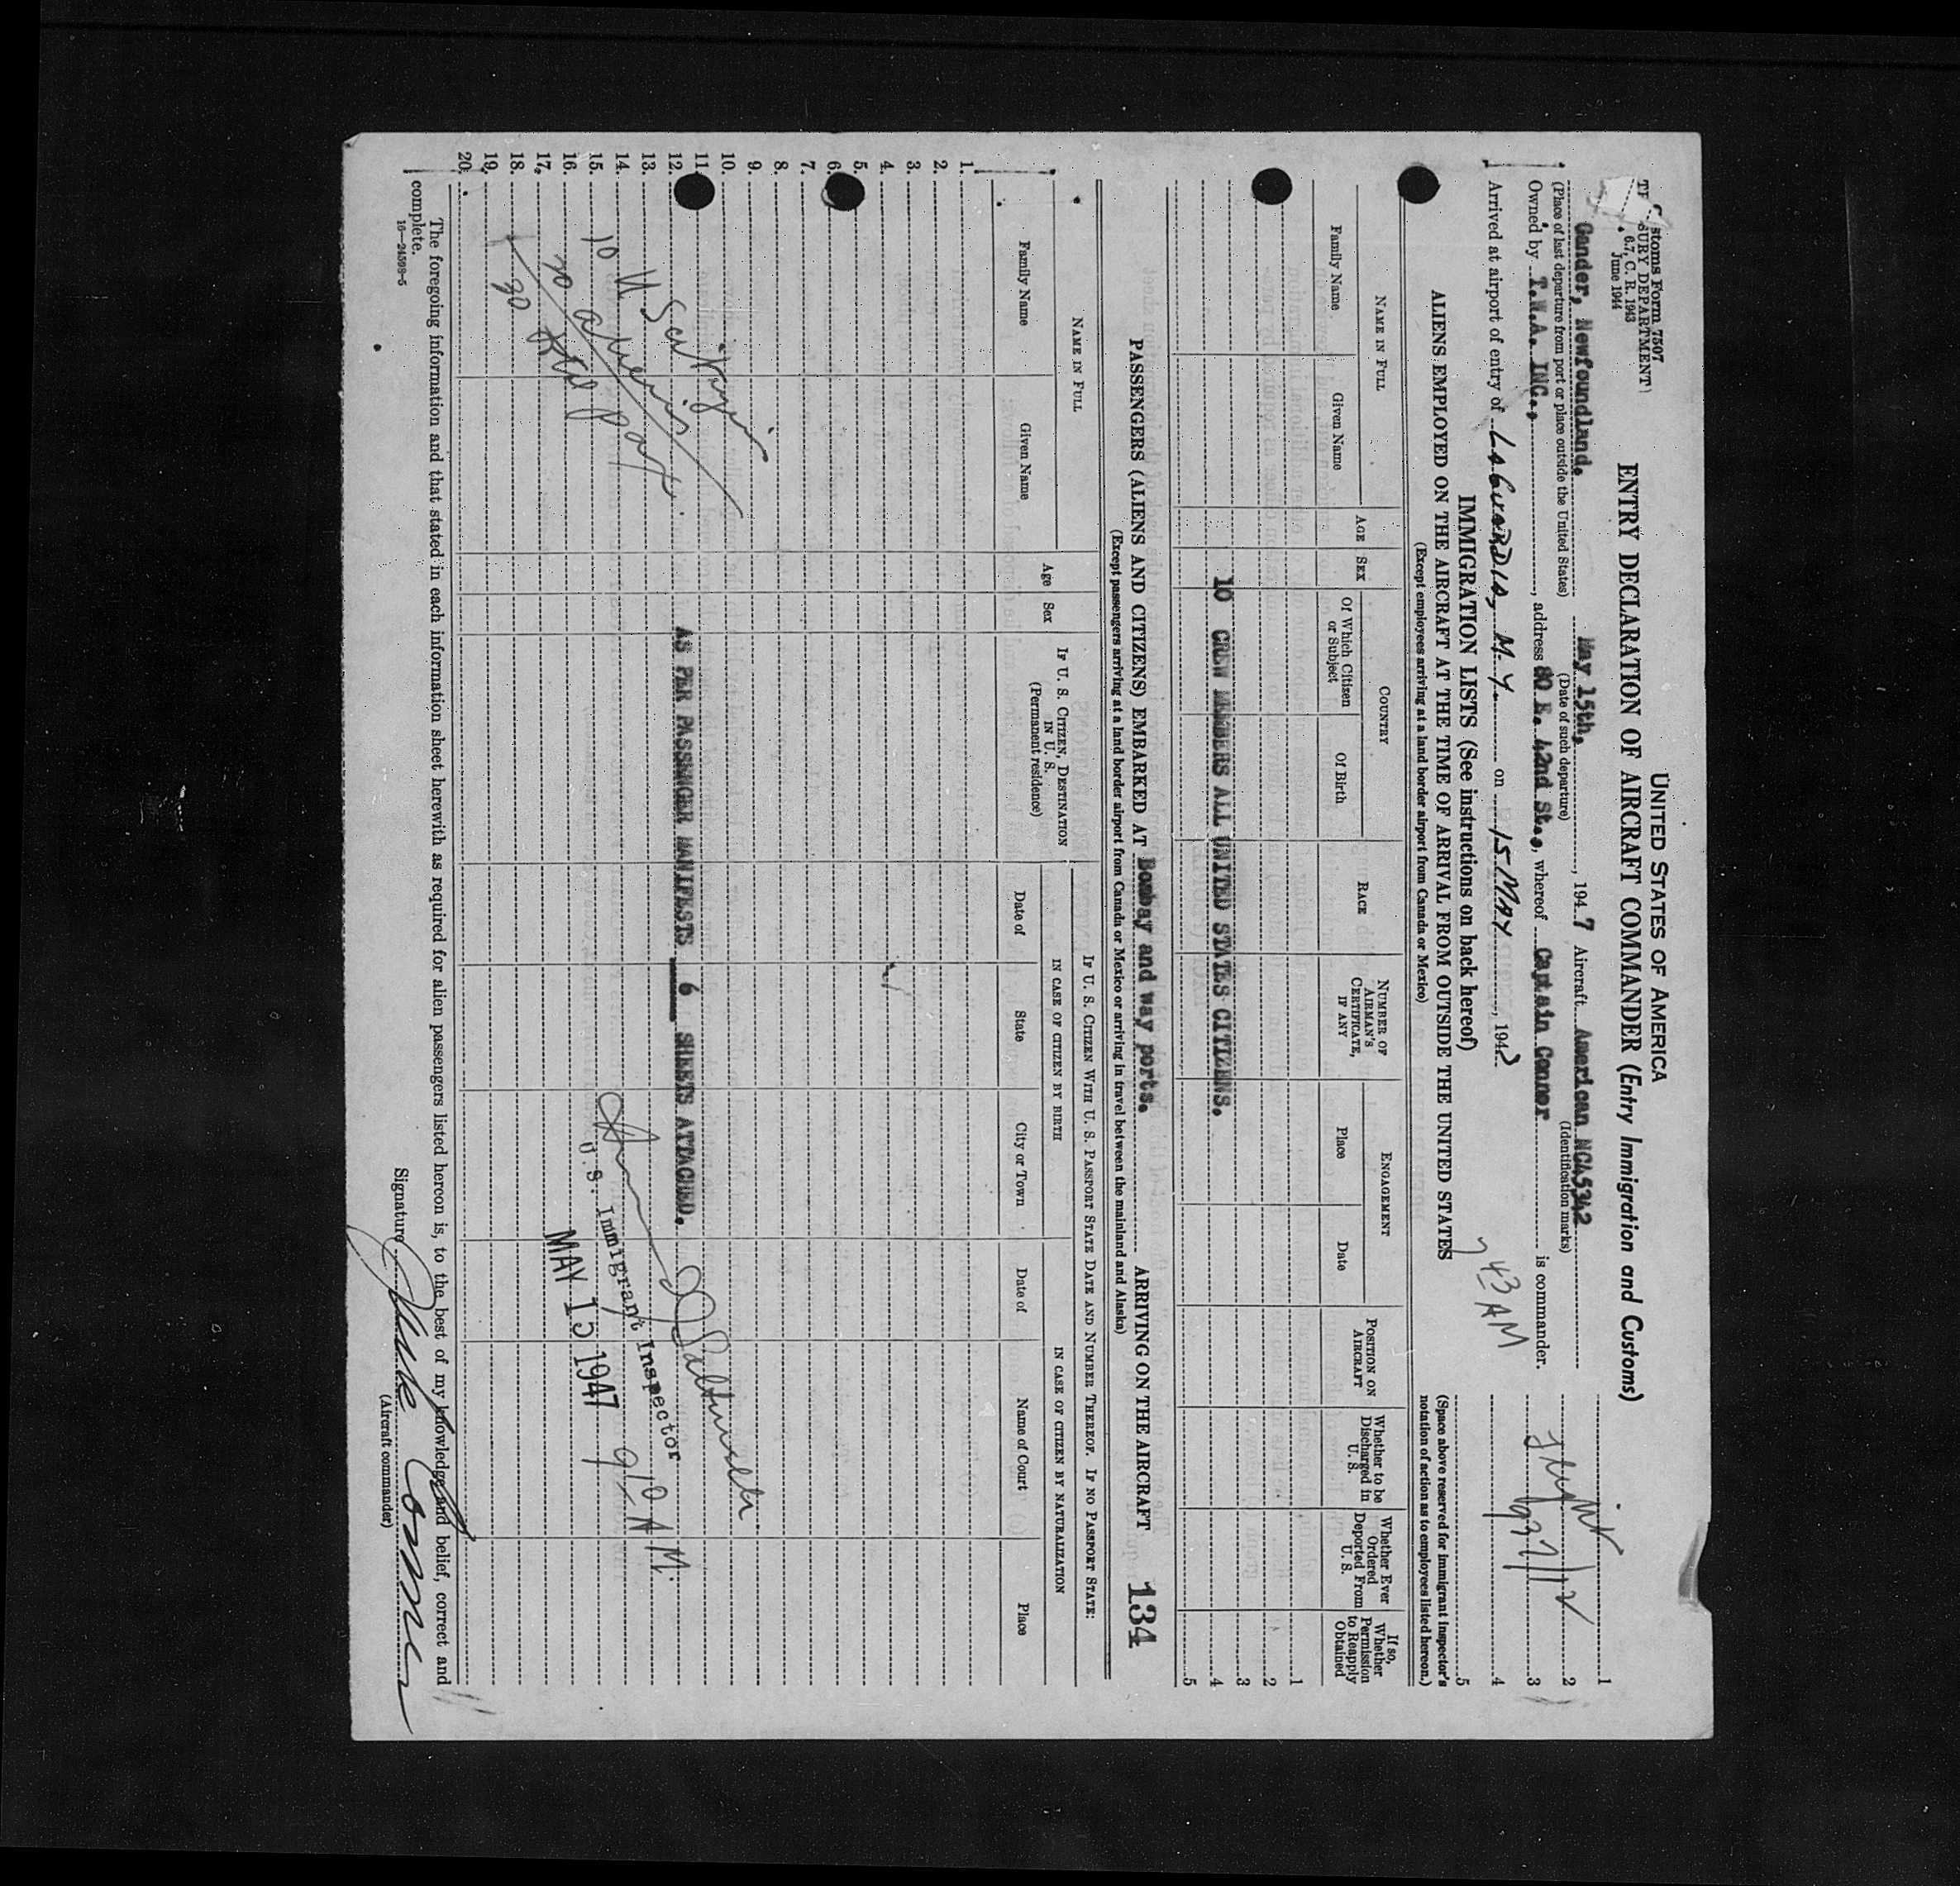 Customs Form 7507
TREASURY DEPARTMENT
6.7, C. R. 1943
June 1944
UNITED STATES OF AMERICA
ENTRY DECLARATION OF AIRCRAFT COMMANDER (Entry Immigration and Customs)
Gander, Newfoundland. May 15th, , 1947 Aircraft American NC45342
(Place of last departure from port or place outside the United States) (Date of such departure) (Identification marks)
Owned by T.W.A. INC., , address 80 E. 42nd St., , whereof Captain Connor is commander.
Arrived at airport of entry of LaGUARDIA, N.Y. on 15 MAY , 1947
743 AM
1
2
3
4
5
(Space above reserved for immigrant inspector's notation of action as to employees listed hereon.)
IMMIGRATION LISTS (See instructions on back hereof)
ALIENS EMPLOYED ON THE AIRCRAFT AT THE TIME OF ARRIVAL FROM OUTSIDE THE UNITED STATES
(Except employees arriving at a land border airport from Canada or Mexico)
NAME IN FULL AGE SEX COUNTRY RACE NUMBER OF AIRMAN'S CERTIFICATE, IF ANY ENGAGEMENT POSITION ON AIRCRAFT Whether to be Discharged in U. S. Whether Ever Ordered Deported From U. S. If so, Whether Permission to Reapply Obtained
Family Name Given Name Of Which Citizen or Subject Of Birth Place Date
1
2
3
10 CREW MEMBERS ALL UNITED STATES CITIZENS. 4
5
PASSENGERS (ALIENS AND CITIZENS) EMBARKED AT Bombay and way ports. ARRIVING ON THE AIRCRAFT 134
(Except passengers arriving at a land border airport from Canada or Mexico or arriving in travel between the mainland and Alaska)
NAME IN FULL Age Sex IF U. S. CITIZEN, DESTINATION IN U. S. (Permanent residence) IF U. S. CITIZEN WITH U. S. PASSPORT STATE DATE AND NUMBER THEREOF. IF NO PASSPORT STATE:
IN CASE OF CITIZEN BY BIRTH IN CASE OF CITIZEN BY NATURALIZATION
Family Name Given Name Date of State City or Town Date of Name of Court Place
1.
2.
3.
4.
5.
6.
7.
8.
9.
10.
11.
12. AS PER PASSENGER MANIFESTS 6 SHEETS ATTACHED.
13.
14.
15.
16.
17.
18.
19.
20.
10 U S Citizens
20 aliens
30 total pax.
U.S. Immigrant Inspector
MAY 15 1947
910 A M.
The foregoing information and that stated in each information sheet herewith as required for alien passengers listed hereon is, to the best of my knowledge and belief, correct and
complete.
16—24598-5
Signature
(Aircraft commander)